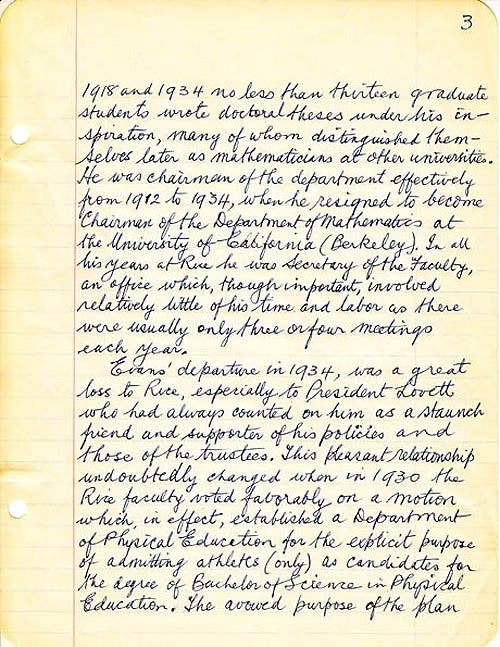 3
1918 and 1934 no less than thirteen graduate
students wrote doctoral theses under his in-
spiration, many of whom distinguished them-
selves later as mathematicians at other universities.
He was chairman of the department effectively
from 1912 to 1934, when he resigned to become
Chairman of the Department of Mathematics at
the University of California (Berkeley). In all
his years at Rice he was Secretary of the Faculty,
an office which, though important, involved
relatively little of his time and labor as there
were usually only three or four meetings
each year.
Evans' departure in 1934, was a great
loss to Rice, especially to President Lovett
who had always counted on him as a staunch
friend and supporter of his policies and
those of the trustees. This pleasant relationship
undoubtedly changed when in 1930 the
Rice faculty voted favorably on a motion
which, in effect, established a Department
of Physical Education for the explicit purpose
of admitting athletes (only) as candidates for
the degree of Bachelor of Science in Physical
Education. The avowed purpose of the plan